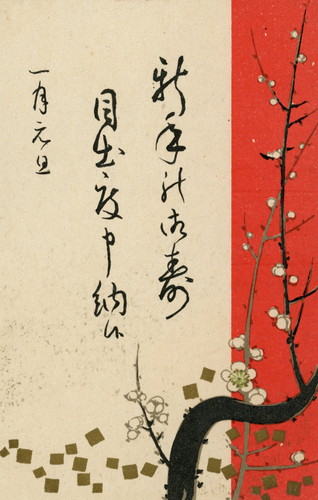 新年の御寿
目出度申納候
一月元旦